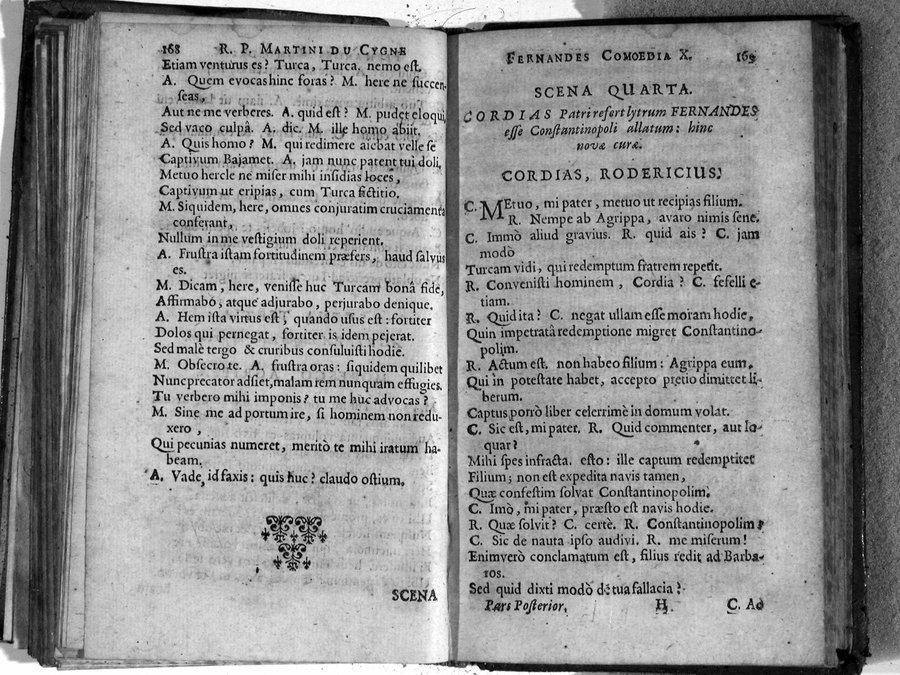 168 R. P. MARTINI DU CYGNE
Etiam venturus es? Turca, Turca. nemo est.
A. Quem evocas hinc foras? M. here ne succen-
seas,
Aut ne me verberes. A. quid est? M. pudet eloqui,
Sed vaco culpâ. A. dic. M. ille homo abiit.
A. Quis homo? M. qui redimere aiebat velle se
Captivum Bajamet. A. jam nunc patent tui doli.
Metuo hercle ne miser mihi insidias loces,
Captivum ut eripias, cum Turca fictitio.
M. Siquidem, here, omnes conjuratim cruciamenta
conferant,
Nullum in me vestigium doli reperient.
A. Frustra istam fortitudinem præfers, haud salvus
es.
M. Dicam, here, venisse huc Turcam bonâ fide,
Affirmabo, atque adjurabo, perjurabo denique.
A. Hem ista virtus est, quando usus est: fortiter
Dolos qui pernegat, fortiter is idem pejerat.
Sed malè tergo & cruribus consuluisti hodie.
M. Obsecro te. A. frustra oras: siquidem quilibet
Nunc precator adsiet, malam rem nunquam effugies.
Tu verbero mihi imponis? tu me huc advocas?
M. Sine me ad portum ire, si hominem non redu-
xero,
Qui pecunias numeret, meritò te mihi iratum ha-
beam.
A. Vade, id faxis: quis huc? claudo ostium.
SCENA
FERNANDES COMOEDIA X. 169
SCENA QUARTA.
CORDIAS Patri refert lytrum FERNANDES
esse Constantinopoli allatum: hinc
novæ curæ.
CORDIAS, RODERICIUS.
C. MEtuo, mi pater, metuo ut recipias filium.
R. Nempe ab Agrippa, avaro nimis sene.
C. Immò aliud gravius. R. quid ais? C. jam
modò
Turcam vidi, qui redemptum fratrem repetit.
R. Convenisti hominem, Cordia? C. fefelli e-
tiam.
R. Quid ita? C. negat ullam esse moram hodie,
Quin impetratâ redemptione migret Constantino-
polim.
R. Actum est, non habeo filium: Agrippa eum,
Qui in potestate habet, accepto pretio dimittet li-
berum.
Captus porrò liber celerrimè in domum volat.
C. Sic est, mi pater. R. Quid commenter, aut lo-
quar?
Mihi spes infracta. esto: ille captum redemptitet
Filium; non est expedita navis tamen,
Quæ confestim solvat Constantinopolim.
C. Imò, mi pater, præsto est navis hodie.
R. Quæ solvit? C. certè. R. Constantinopolim?
C. Sic de nauta ipso audivi. R. me miserum!
Enimverò conclamatum est, filius redit ad Barba-
ros.
Sed quid dixti modò de tua fallacia?
Pars Posterior. H. C. Ad